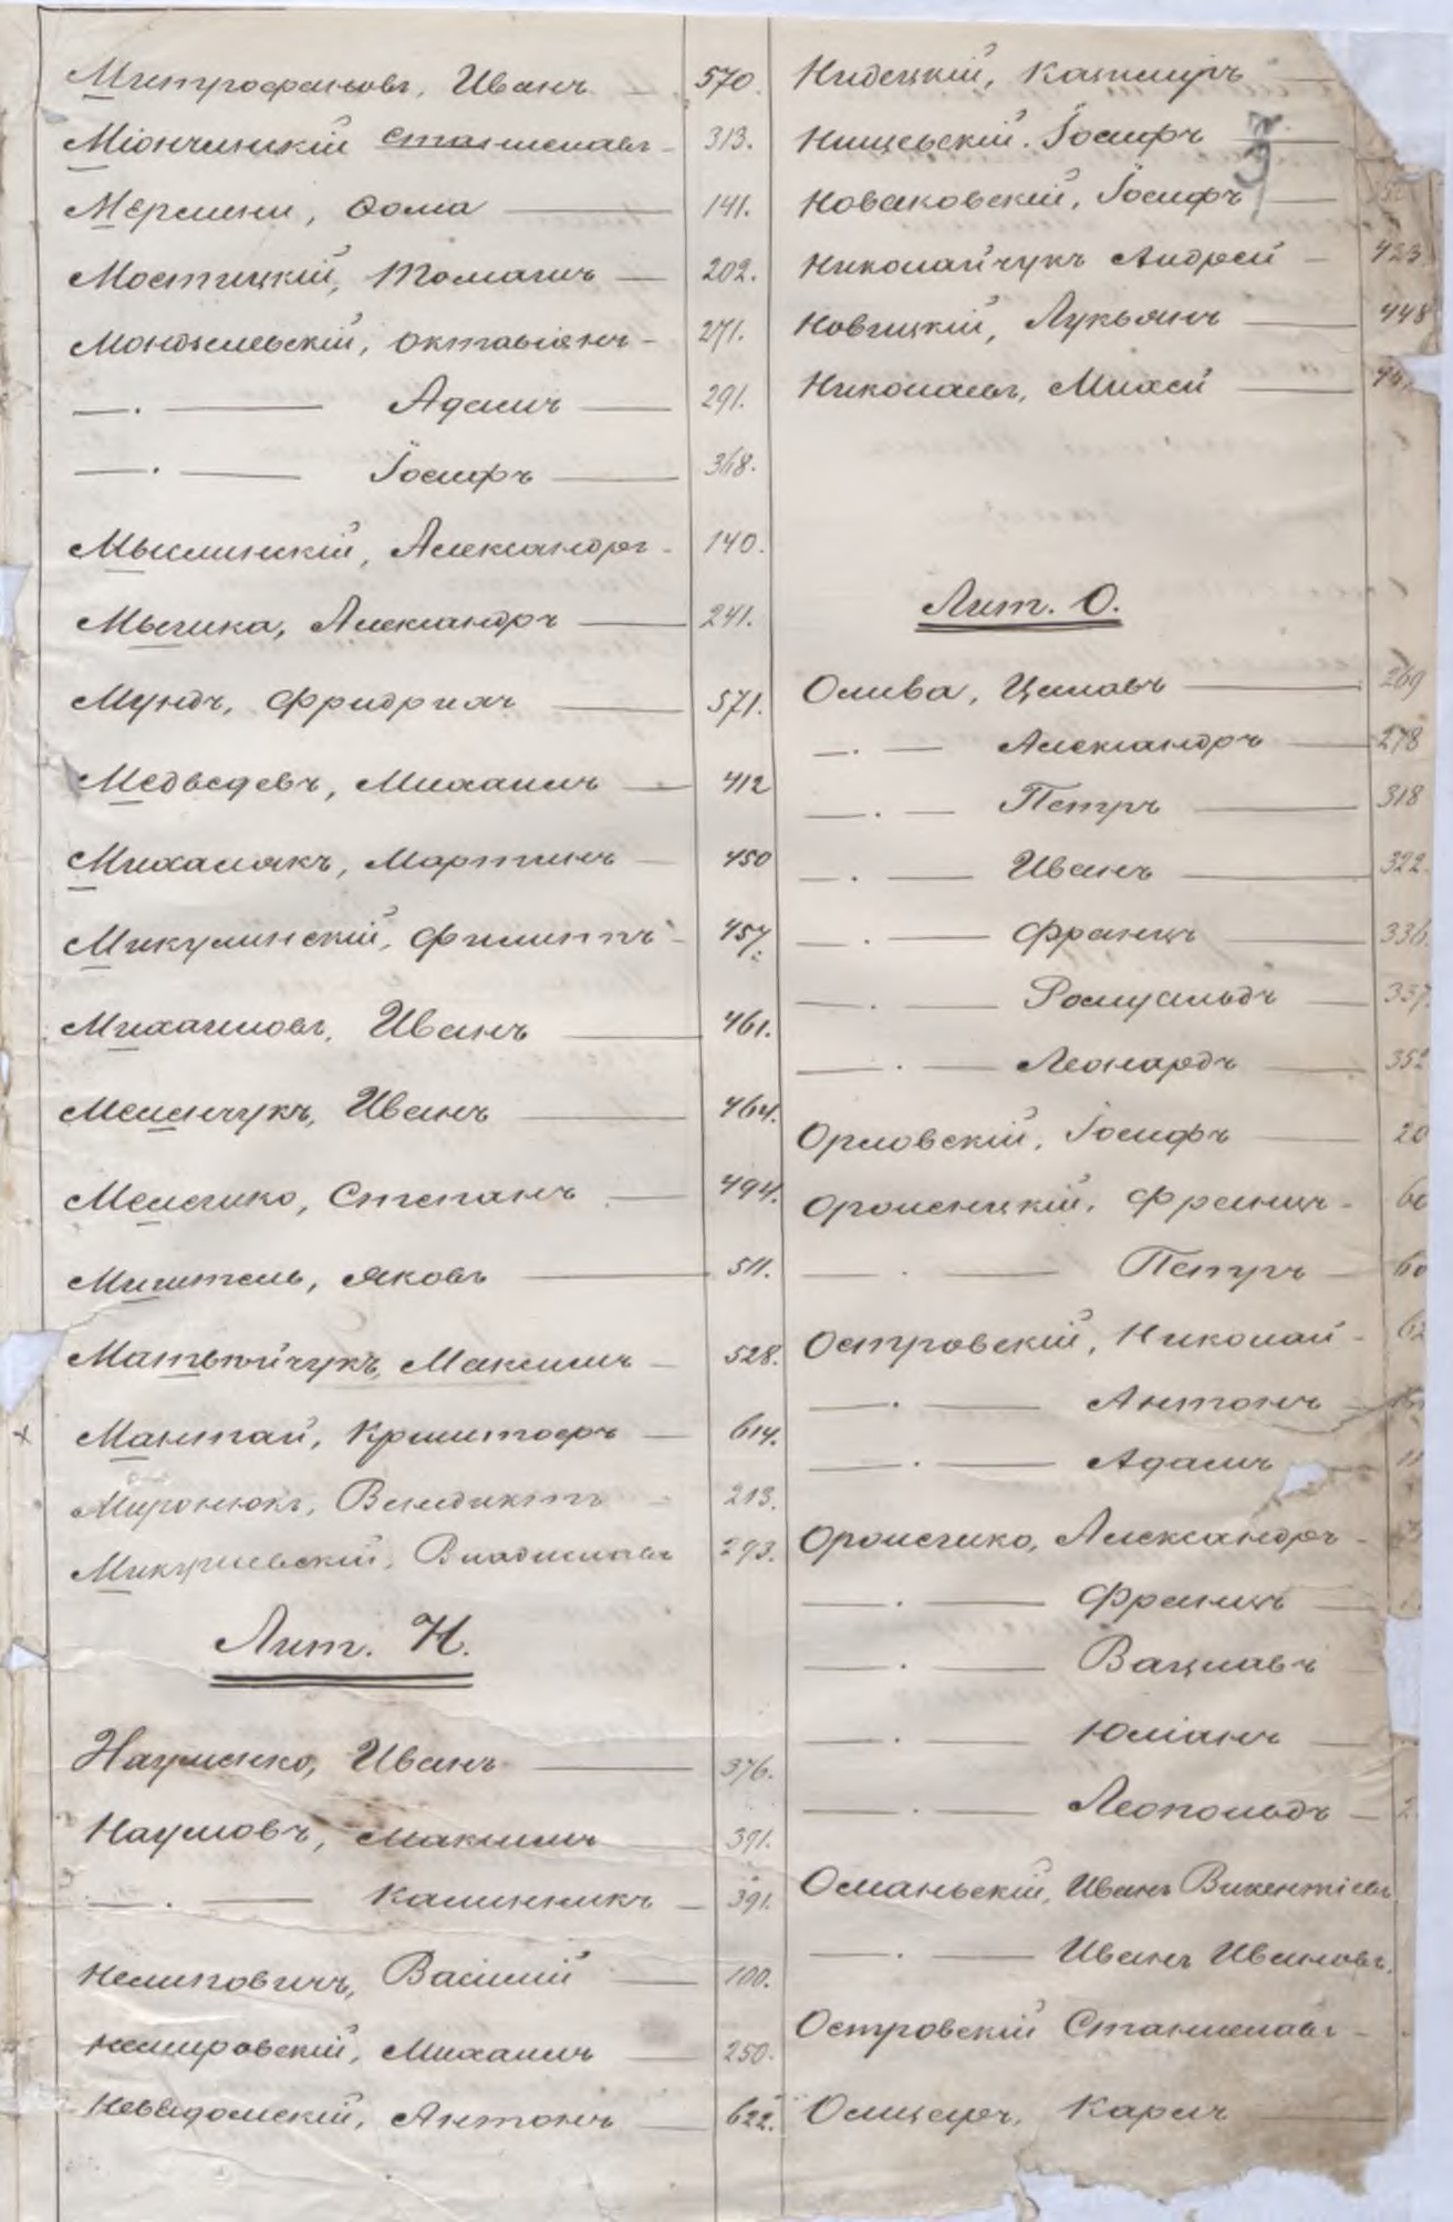 Митрофановъ, Иванъ — 570.
Міончинскій Станиславъ - 313.
Мѣрмени, Ѳома — 141.
Мостицкій, Томашъ — 202.
Октавіянъ - 271.
—.— Адамъ — 291.
—.— Іосифъ — 368.
Мыслинскій, Александръ - 140.
Мычка, Александръ — 241.
Мундъ, Фридрихъ — 571.
Медвѣдевъ, Михаилъ — 412
Михалякъ, Мартинъ — 450
Микулинскій, Филиппъ - 457.
Михайловъ, Иванъ — 461.
Мельничукъ, Иванъ — 464.
Степанъ — 494.
Яковъ — 511.
Матвѣйчукъ, Максимъ — 528.
Мантай, Криштофъ — 614.
Миронюкъ, Венедиктъ - 213.
Владиславъ 293.
Лит. Н.
Науменко, Иванъ — 376.
Наумовъ, Максимъ 391.
—.— Калинникъ — 391.
Нелиповичъ, Василій — 100.
Немировскій, Михаилъ — 250.
Невядомскій, Антонъ — 622.
Нидецкій, Казимиръ —
Іосифъ —
Новаковскій, Іосифъ —
Николайчукъ Андрей - 423
Новицкій, Лукьянъ — 448
Николаевъ, Михей —
Лит. О.
Олива, Цславъ — 269
—.— Александръ — 278
—.— Петръ — 318
—.— Иванъ — 322.
—.— Францъ — 336.
—.— Ромуальдъ — 337.
—.— Леонардъ — 352
Орловскій, Іосифъ — 20
Францъ - 60
—.— Петръ — 60
Островскій, Николай - 62
—.— Антонъ —
—.— Адамъ — 11
Александръ -
—.— Францъ —
—.— Вацлавъ
—.— Юліанъ —
—.— Леопольдъ — 2
Османьскій, Иванъ Викентіевъ
—.— Иванъ Ивановъ.
Островскій Станиславъ -
Карлъ —